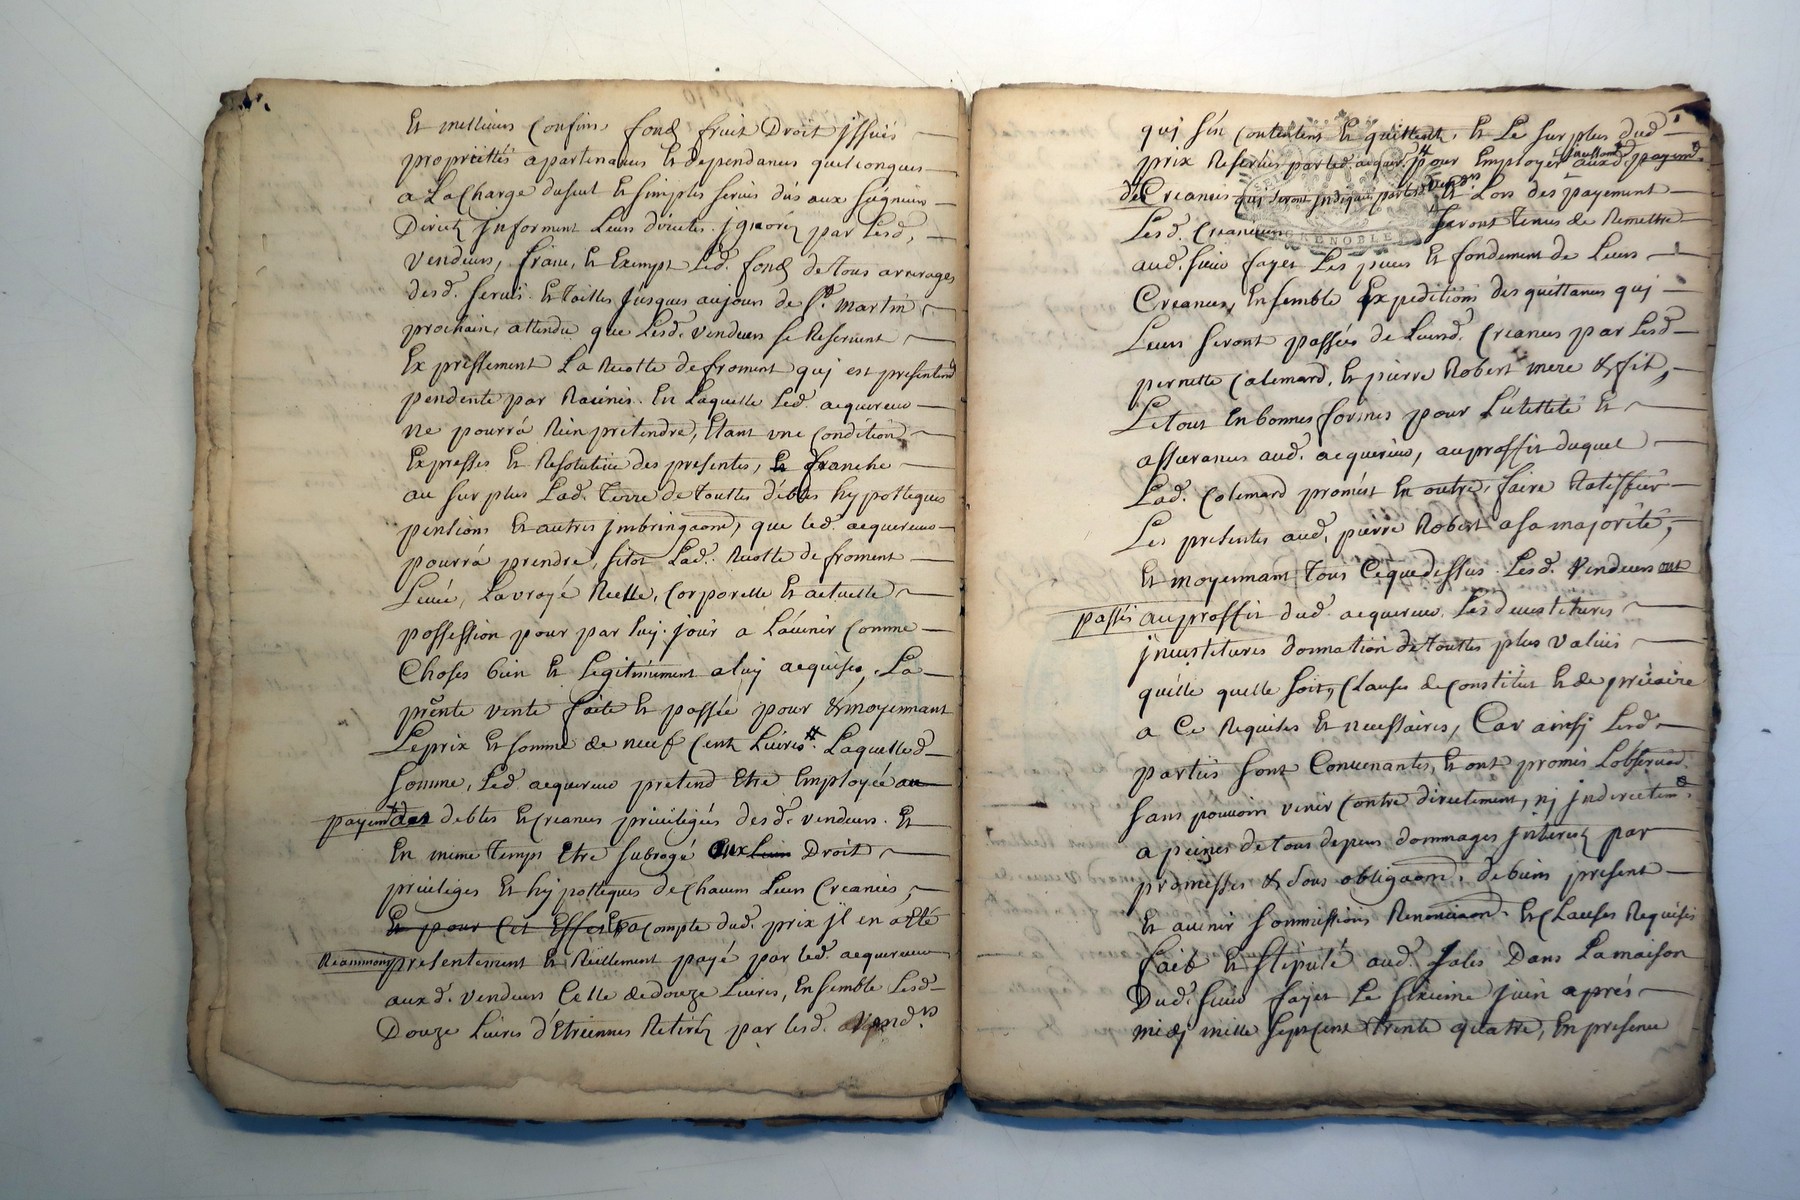 Et meilleurs confins fond fruit Droit jssues
propriettés apartenances Et dependances quelconques
a La Charge du seul Et simples servis dûs aux seigneurs
Directs Informent Leurs directes jgnorés par Lesd.
vendeurs, franc, Et Exempt Led. fond de tous arrerages
desd. servis Et tailles jusques aujour de St. martin
prochain, attendu que Lesd. vendeurs se Reservent
Expressement La Recolte de froment quj est presentemt
pendente par Racines. En Laquelle Led. acquereur
ne pourrá Rien pretendre, Etant une condition
Expresses Et Resolutive des presentes, Et franche
au surplus Lad. Terre de touttes debtes hypotteques
pensions Et autres jmbringaõns, que led. acquereur
pourrá prendre, sitot Lad. Recolte de froment
Levée, La vraye Reelle, Corporelle Et actuelle
possession pour par luj jouir a L'avenir Comme
Choses bien Et Legitimement a luj acquises, La
prñte vente faite Et passée pour & moyennant
Le prix Et somme de neuf Cent Livres Laquelled
somme, Led. acquereur pretend Etre Employée au
payemt des debtes Et Creances privilégiés desd. vendeurs. Et
En meme temps Etre subrogé aux Leurs Droit
privileges Et hypotteques de Chacun Leurs Creances,
Et pour Cet Effet Et a compte dud. prix jl en a Eté
Reaumont presentement Et Réellement payé par led. acquereur
auxd. vendeurs Celle de douze Livres, Ensemble Lesd.
Douze Livres d'Etriennes Retirés par lesd. vendrs.
quj s'en contentent Et quittent, Et Le surplus dud
prix Reservés par led. acquer. pour Employer auxd. payemt
de Creances quj seront jndiqués par lesd. vendrs Et Lors des payement
Lesd. Creanciers seront Tenus de Remettre
GRENOBLE
aud. sieur fayet Les pieces Et fondement de Leurs
Creances, Ensemble Expeditions des quittances quj
Leurs seront passées de Leursd. Creances par Lesd
pernette Calemard, Et pierre Robert mere & fils,
Le tout En bonnes formes pour L'utillité Et
assurances aud. acquereur, au proffit duquel
Lad. Colemard promest En outre, faire Ratiffier
Les presentes aud. pierre Robert a sa majorité,
Et moyennant Tous Ce que dessus Lesd. Vendeurs ont
passés au proffit dud. acquereur Les devestitures
jnvestitures donnation de touttes plus values
quélle quelle soit, Clauses de constitut Et de précaire
a Ce Requises Et necessaires, Car ainsj Lesd.
parties sont Convenantes, Et ont promis Lobservaõn
sans pouvoir venir Contre directement, nj jndirectemt.
a peines de tous depens dommages jnterests par
promesses & sous obligaõns, de biens present
Et avenir sommissions Renonciaõns Et Clauses Requises
fait Et stipulé aud. Sales Dans La maison
Dud. sieur fayet Le sixieme juin aprés
midj mille sept cent trente quatre, En presence